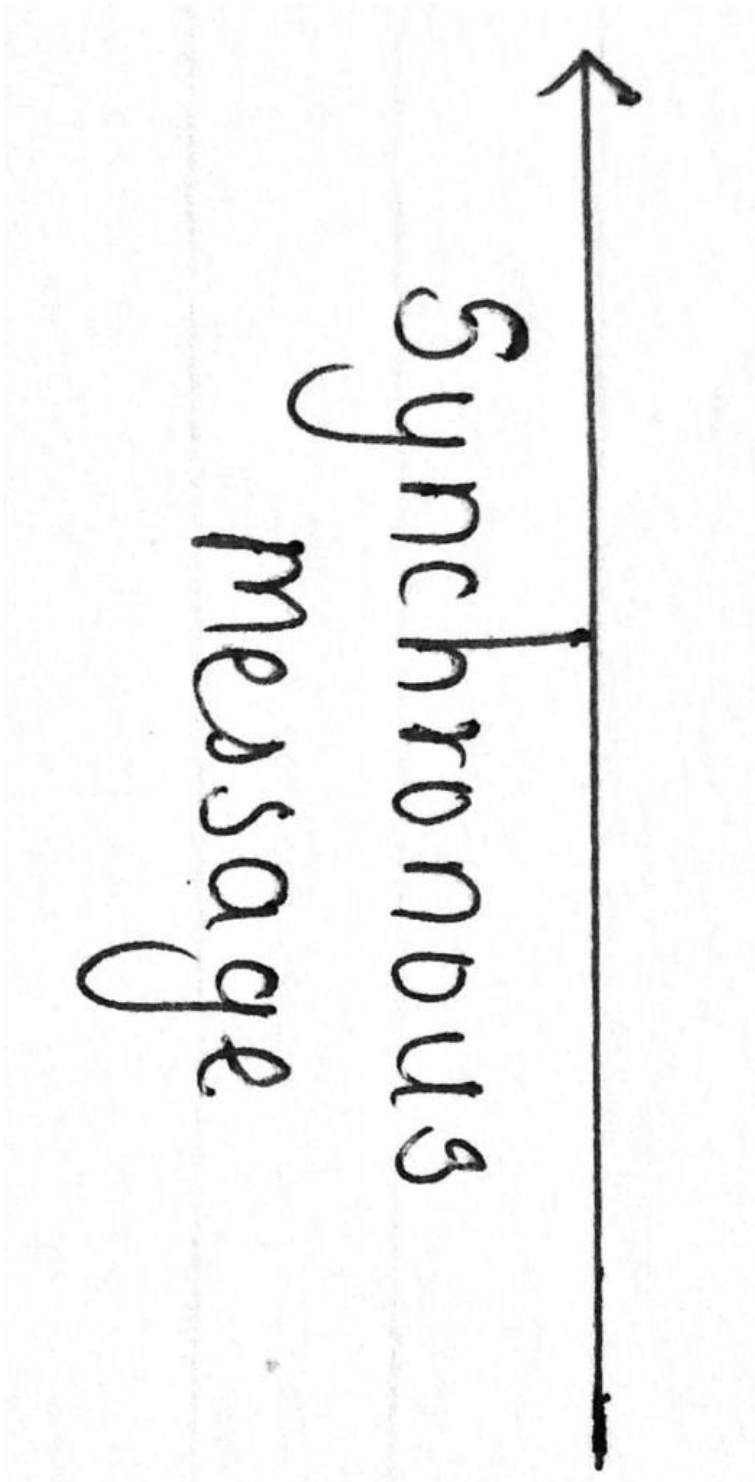 Synchronous
Message